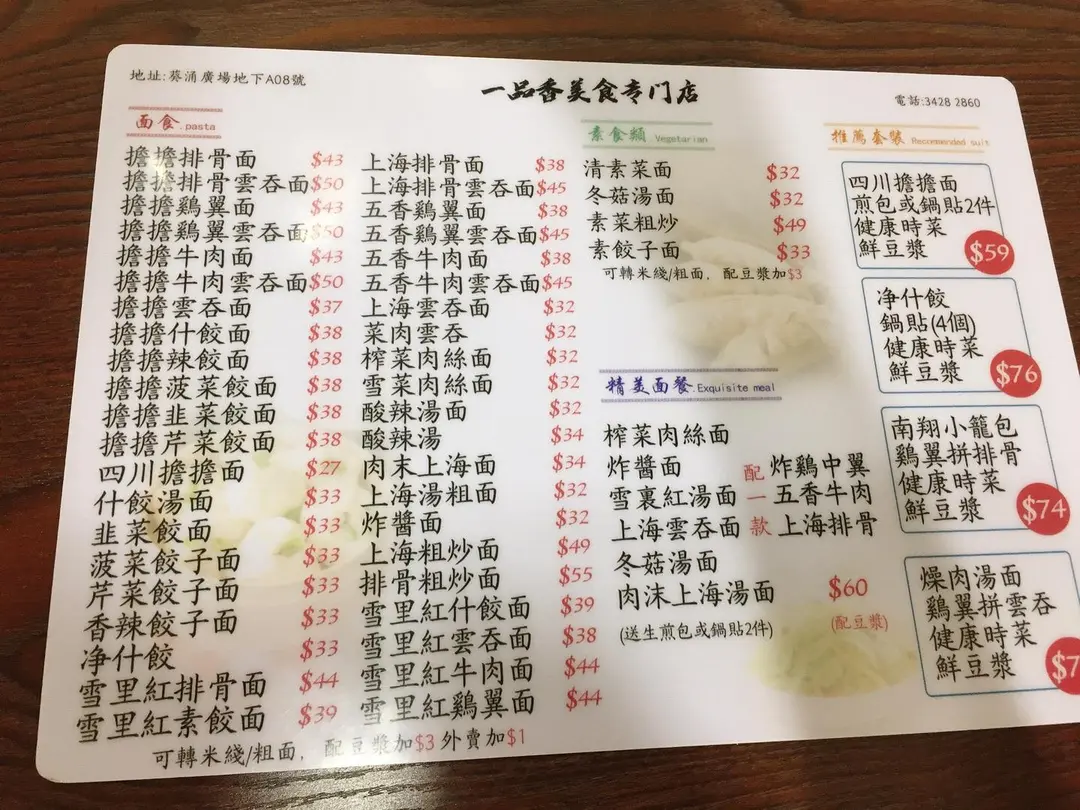 地址:葵涌廣場地下A08號
一品香美食专门店
電話:3428 2860
面食 pasta
擔擔排骨面 $43
擔擔排骨雲吞面 $50
擔擔鷄翼面 $43
擔擔鷄翼雲吞面 $50
擔擔牛肉面 $43
擔擔牛肉雲吞面 $50
擔擔雲吞面 $37
擔擔什餃面 $38
擔擔辣餃面 $38
擔擔菠菜餃面 $38
擔擔韭菜餃面 $38
擔擔芹菜餃面 $38
四川擔擔面 $27
什餃湯面 $33
韭菜餃面 $33
菠菜餃子面 $33
芹菜餃子面 $33
香辣餃子面 $33
净什餃 $33
雪里紅排骨面 $44
雪里紅素餃面 $39
上海排骨面 $38
上海排骨雲吞面 $45
五香鷄翼面 $38
五香鷄翼雲吞面 $45
五香牛肉面 $38
五香牛肉雲吞面 $45
上海雲吞面 $32
菜肉雲吞 $32
榨菜肉絲面 $32
雪菜肉絲面 $32
酸辣湯面 $32
酸辣湯 $34
肉末上海面 $34
上海湯粗面 $32
炸醬面 $32
上海粗炒面 $49
排骨粗炒面 $55
雪里紅什餃面 $39
雪里紅雲吞面 $38
雪里紅牛肉面 $44
雪里紅鷄翼面 $44
可轉米綫/粗面，配豆漿加$3 外賣加$1
素食類 Vegetarian
清素菜面 $32
冬菇湯面 $32
素菜粗炒 $49
素餃子面 $33
可轉米綫/粗面，配豆漿加$3
精美面餐 Exquisite meal
榨菜肉絲面
炸醬面
雪裏紅湯面
上海雲吞面
冬菇湯面
肉沫上海湯面
(送生煎包或鍋貼2件)
配一款
炸鷄中翼
五香牛肉
上海排骨
$60
(配豆漿)
推薦套裝 Reccomended suit
四川擔擔面
煎包或鍋貼2件
健康時菜
鮮豆漿
$59
净什餃
鍋貼(4個)
健康時菜
鮮豆漿
$76
南翔小籠包
鷄翼拼排骨
健康時菜
鮮豆漿
$74
燥肉湯面
鷄翼拼雲吞
健康時菜
鮮豆漿
$7